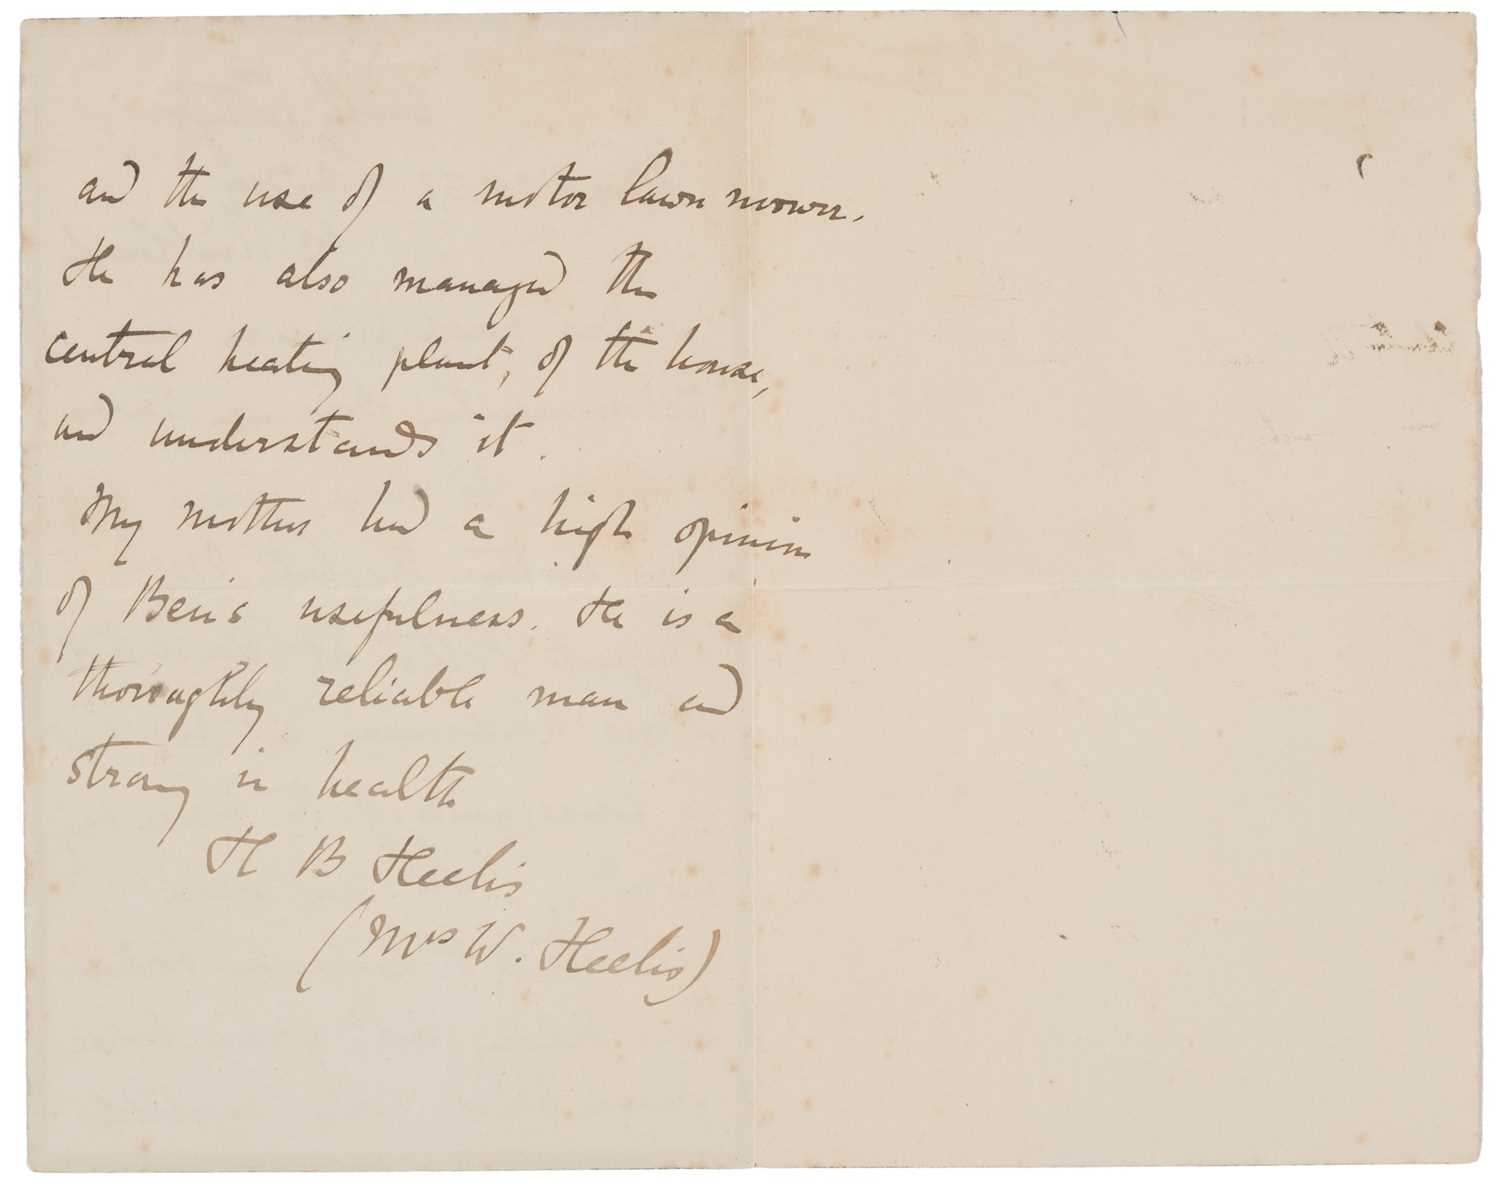 and the use of a motor lawn mower.
He has also managed the
central heating plant, of the house,
and understands it.
My mother had a high opinion
of Ben's usefulness. He is a
thoroughly reliable man and
strong in health
H B Heelis
(Mrs W. Heelis)